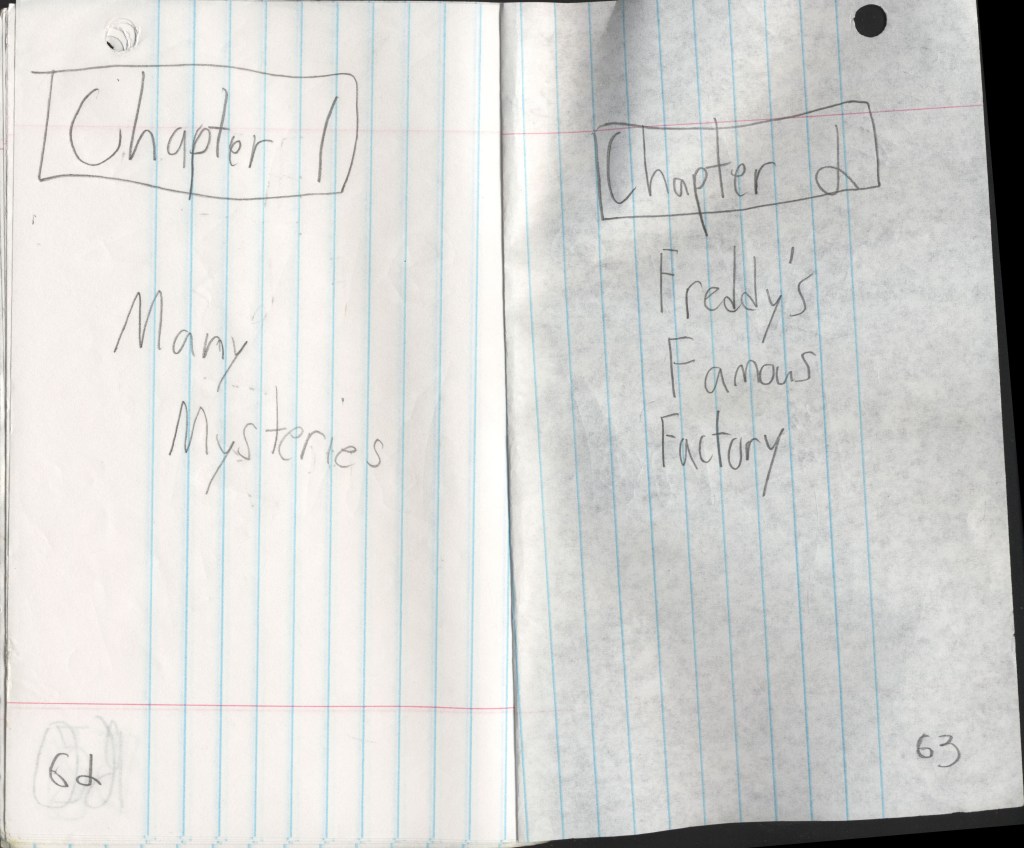 Chapter 1
Many
Mysteries
62
Chapter 2
Freddy's
Famous
Factory
63